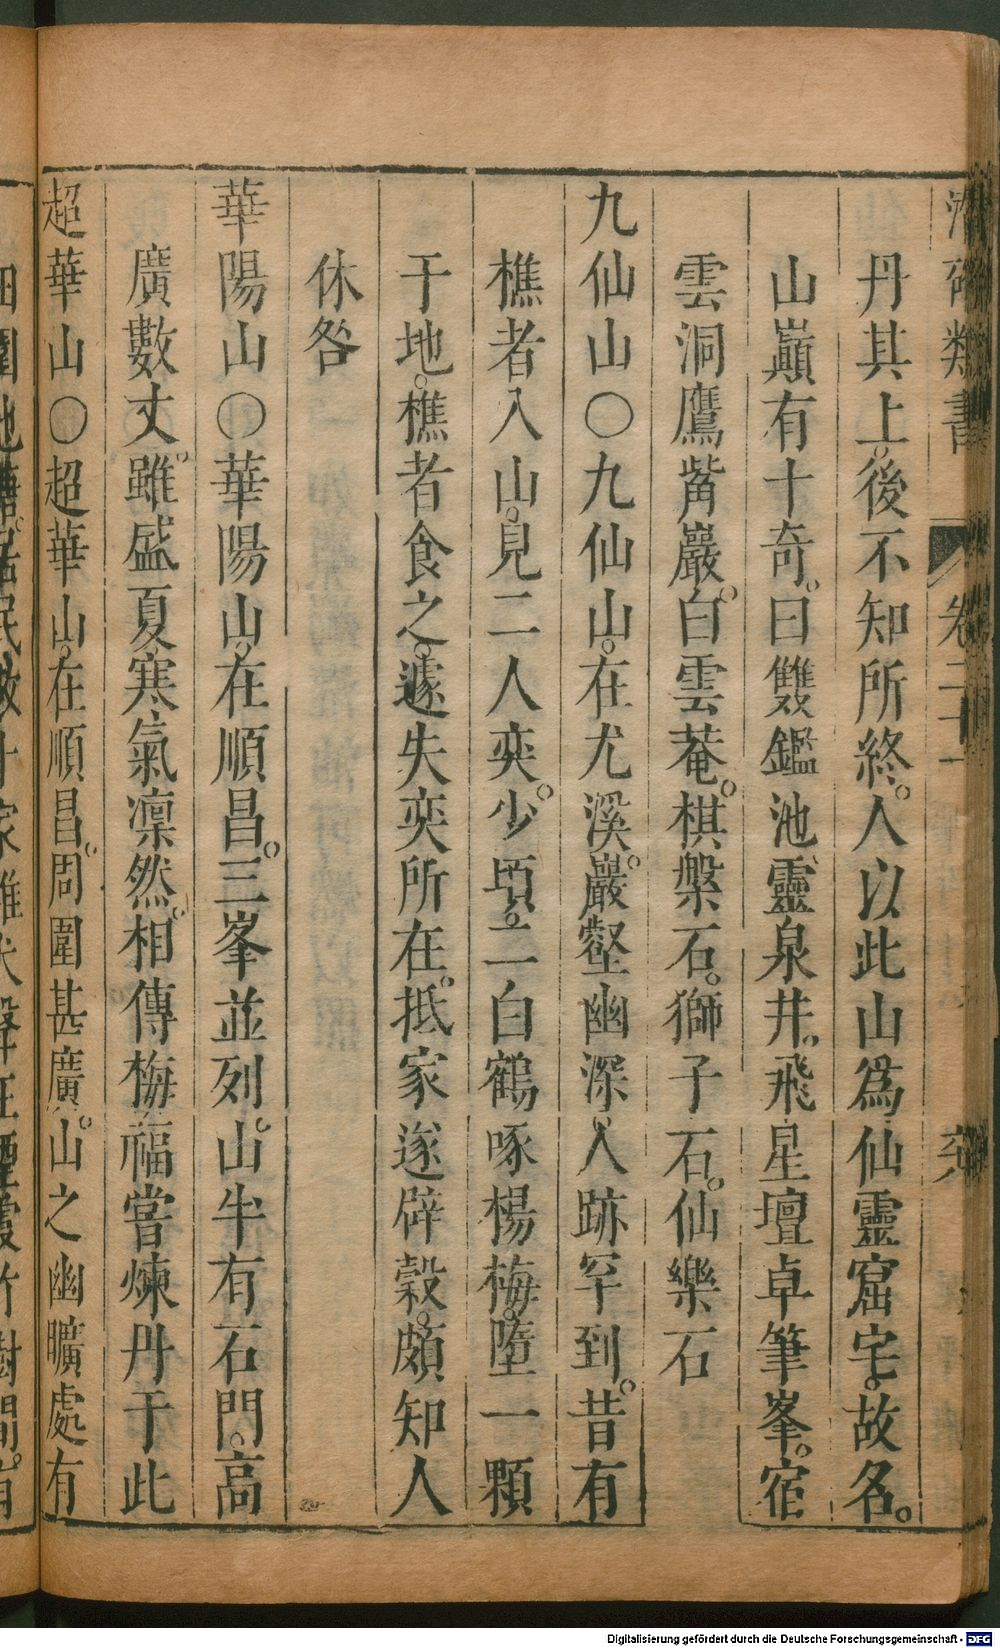 類書
卷二十一
丹其上。後不知所終。人以此山爲仙靈窟宅。故名。
山巔有十奇。曰雙鑑池、靈泉井。飛星壇卓筆峯。宿
雲洞鷹觜巖。白雲菴。棋槃石。獅子石。仙樂石
九仙山○九仙山。在尤溪。巖壑幽深。人跡罕到。昔有
樵者入山。見二人奕。少頃。二白鶴啄楊梅。墮一顆
于地。樵者食之。遽失奕所在。抵家遂辟穀。頗知人
休咎
華陽山○華陽山。在順昌。三峯並列。山半有石門。高
廣數丈。雖盛夏寒氣凛然。相傳梅福嘗煉丹于此
超華山○超華山。在順昌。周圍甚廣。山之幽曠處有
Digitalisierung gefördert durch die Deutsche Forschungsgemeinschaft - DFG